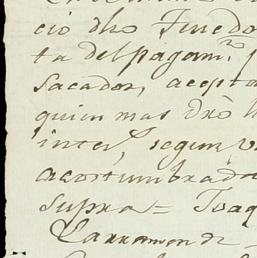 cio dho Tinedo
ta del pagam.to
sacador, acepta
quien mas dro
inter, segun
acostumbrada
supra = Joaq
Larramendi